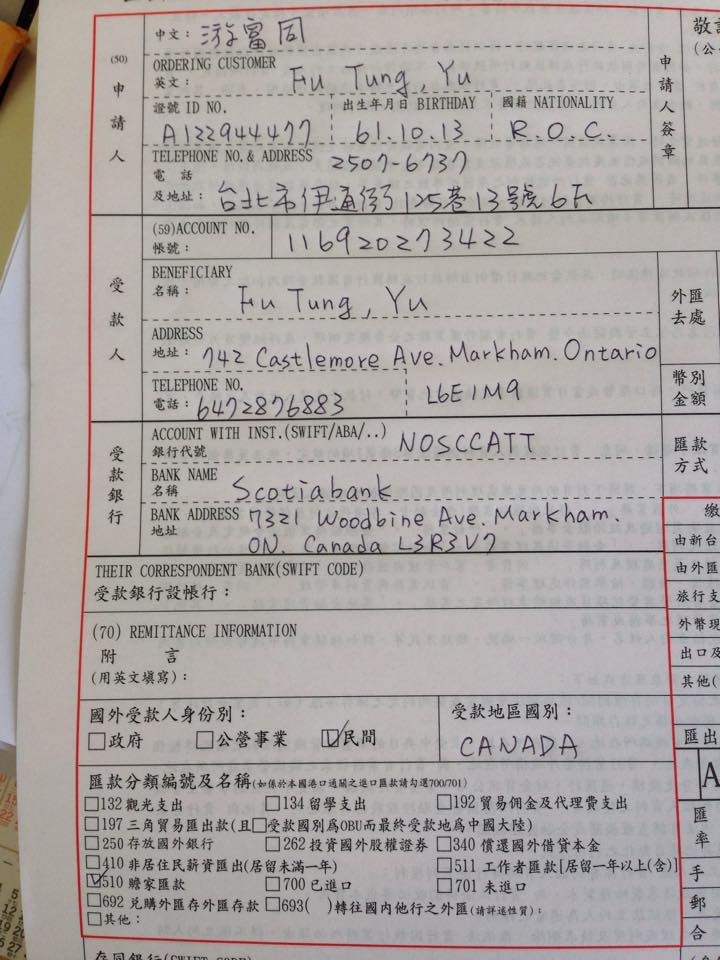 中文：游富同
(50)
申請人
ORDERING CUSTOMER
英文： Fu Tung, Yu
證號 ID NO. 出生年月日 BIRTHDAY 國籍 NATIONALITY
A122944477 61.10.13 R.O.C.
TELEPHONE NO.& ADDRESS 2507-6737
電 話
及地址：台北市伊通街125巷13號6F
申請人簽章
敬請
(公
(59)ACCOUNT NO.
帳號： 116920273422
受款人
BENEFICIARY
名稱： Fu Tung, Yu
ADDRESS
地址：742 Castlemore Ave. Markham. Ontario
TELEPHONE NO.
電話：6472876883 L6E1M9
外匯
去處
幣別
金額
受款銀行
ACCOUNT WITH INST.(SWIFT/ABA/..) NOSCCATT
銀行代號
BANK NAME
名稱 Scotiabank
BANK ADDRESS 7321 Woodbine Ave. Markham.
地址 ON. Canada L3R3V7
匯款
方式
繳
由新台
由外匯
旅行支
外幣現
出口及
其他(
THEIR CORRESPONDENT BANK(SWIFT CODE)
受款銀行設帳行：
(70) REMITTANCE INFORMATION
附 言
(用英文填寫)：
國外受款人身份別：
□政府 □公營事業 ☑民間
受款地區國別：
CANADA
匯出
匯款分類編號及名稱(如係於本國港口通關之進口匯款請勾選700/701)
□132 觀光支出 □134 留學支出 □192 貿易佣金及代理費支出
□197 三角貿易匯出款(且□受款國別為OBU而最終受款地為中國大陸)
□250 存放國外銀行 □262 投資國外股權證券 □340 償還國外借貸本金
□410 非居住民薪資匯出(居留未滿一年) □511 工作者匯款[居留一年以上(含)]
☑510 贍家匯款 □700 已進口 □701 未進口
□692 兌購外匯存外匯存款 □693( )轉往國內他行之外匯(請詳述性質)：
□其他：
A
匯
率
手
郵
合
存同銀行(SWIFT CODE)